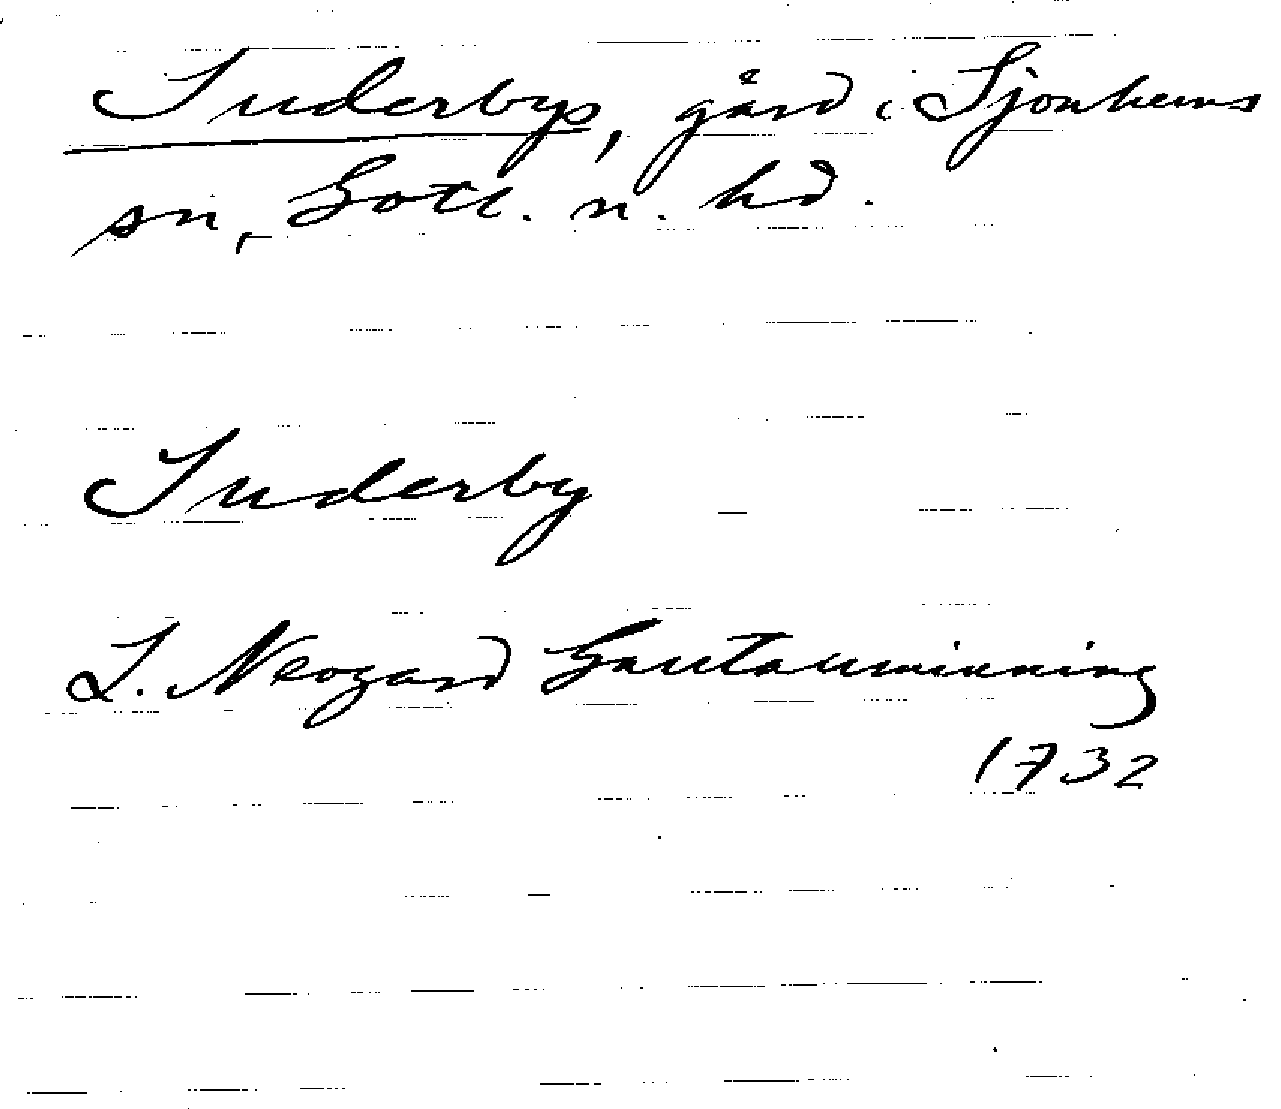 Suderbys, gård i Sjonhems
sn, Gotl. n. hd.
Suderby
L. Neogard Gautauminning
1732